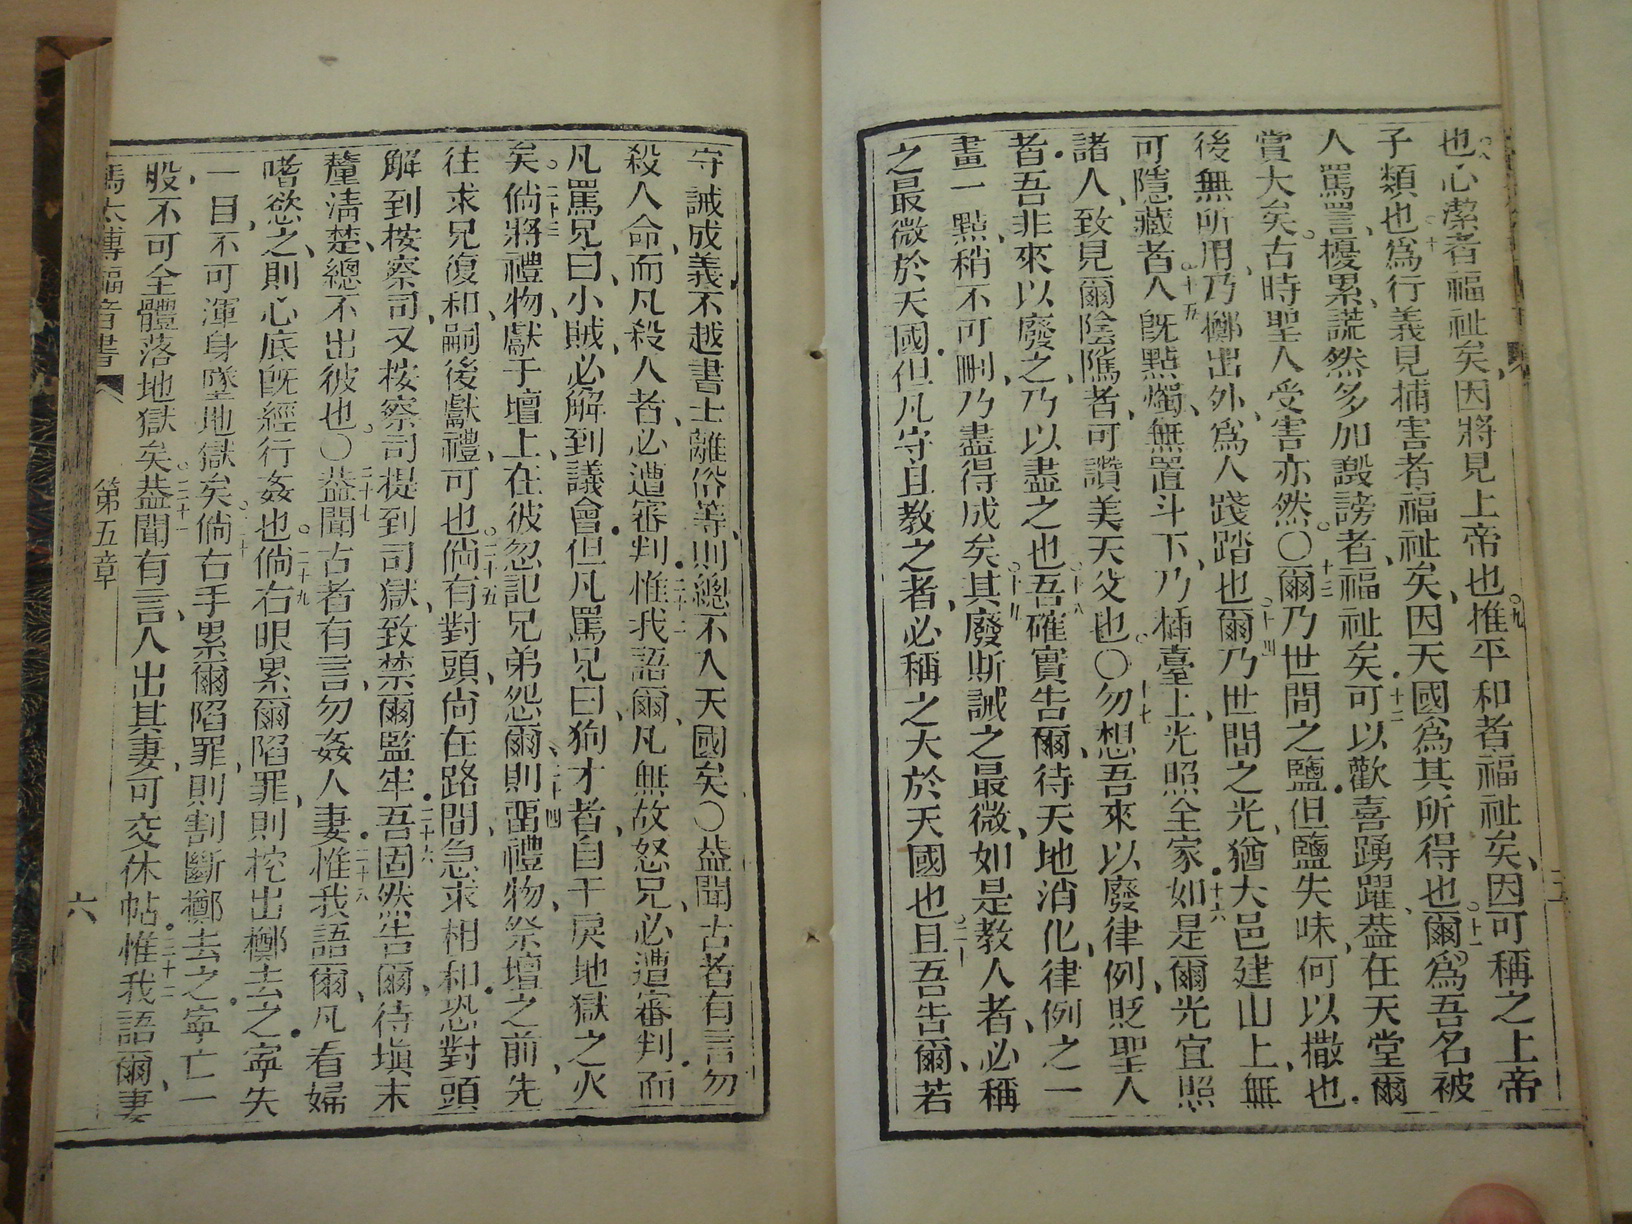 也○八心潔者福祉矣、因將見上帝也○九推平和者福祉矣、因可稱之上帝
子類也○十爲行義見捕害者福祉矣、因天國爲其所得也○十一爾爲吾名被
人罵詈、擾累、謊然多加譭謗者、福祉矣十二可以歡喜踴躍、蓋在天堂爾
賞大矣○古時聖人受害亦然○○十三爾乃世間之鹽、但鹽失味、何以撒也
後無所用、乃擲出外、爲人踐踏也○十四爾乃世間之光、猶大邑建山上、無
可隱藏者○十五人旣點燭、無置斗下、乃插臺上光照全家十六如是爾光宜照
諸人、致見爾陰隲者、可讚美天父也○○十七勿想吾來以廢律例、貶聖人
者、吾非來以廢之、乃以盡之也○十八吾確實告爾、待天地消化、律例之一
畫一點、稍不可刪、乃盡得成矣○十九其廢斯誡之最微、如是教人者、必稱
之最微於天國但凡守且教之者、必稱之大於天國也○二十且吾告爾、若
守誡成義不越書士離俗等、則總不入天國矣○二十一蓋聞古者有言勿
殺人命、而凡殺人者、必遭審判二十二惟我語爾、凡無故怒兄、必遭審判而
凡罵兄曰、小賊、必解到議會但凡罵兄曰、狗才者、自干戾地獄之火
矣○二十三倘將禮物、獻于壇上、在彼忽記兄弟怨爾、二十四則畱禮物、祭壇之前、先
往求兄復和、嗣後獻禮、可也○二十五倘有對頭、尙在路間、急求相和恐對頭
解到按察司、又按察司提到司獄、致禁爾監牢二十六吾固然告爾、待塡末
釐清楚、總不出彼也○○二十七蓋聞古者有言、勿姦人妻二十八惟我語爾、凡看婦
嗜慾之、則心底旣經行姦也○二十九倘右眼累爾陷罪、則挖出擲去之寧失
一目、不可渾身墜地獄矣○三十倘右手累爾陷罪、則割斷擲去之寧亡一
般、不可全體落地獄矣○三十一蓋聞有言、人出其妻、可交休帖三十二惟我語爾、妻
馬太傳福音書 第五章 六
五